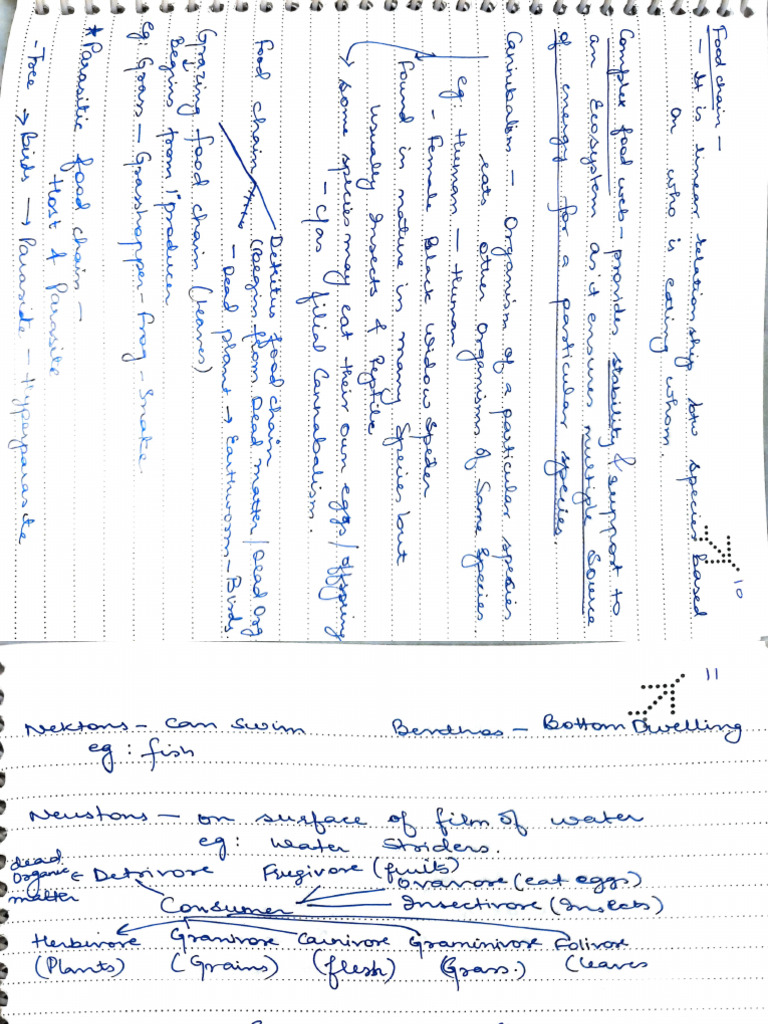 10
Food chain -
- It is linear relationship b/w species based
on who is eating whom.
Complex food web - provides stability & support to
an Ecosystem as it ensures multiple source
of energy for a particular species.
Cannibalism - Organism of a particular species
eats other organisms of same species
eg: Human - Human
- Female Black widow Speder
found in nature in many species but
usually Insects & Reptile
→ Some species may eat their own eggs/offspring
- c/as filial Cannabalism.
Food chain
Detritus food chain
(Begin from Dead matter/Dead Org
- Dead plant → Earthworm - Birds
Grazing food chain (leaves)
Begins from 1° producer
eg: Grass - Grasshopper - Frog - Snake
* Parasitic food chain -
Host & Parasite
- Tree → Birds → Parasite - Hyperparasite
11
Nektons - Can Swim Benthos - Bottom Dwelling
eg: fish
Neustons - on surface of film of water
eg: Water Striders.
dead organic matter
Detrivore Frugivore (fruits)
Ovavore (eat eggs)
Consumer Insectivore (Insects)
Herbivore Granivore Carnivore Graminivore Folivore
(Plants) (Grains) (flesh) (Grass.) (leaves